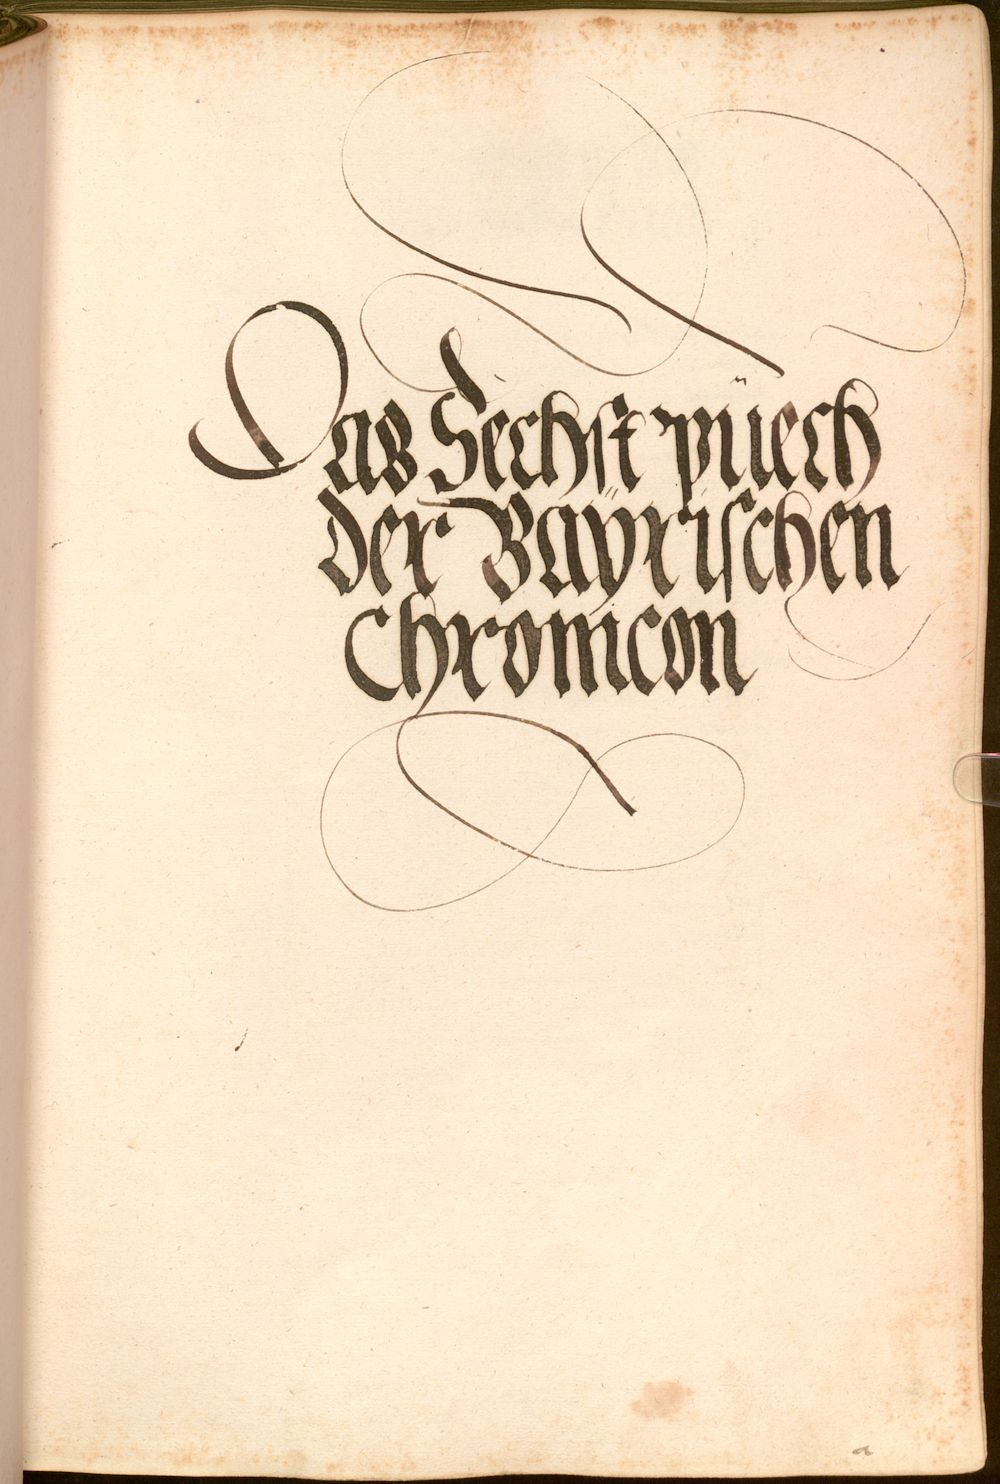 Das Sechst püech
der Bayrischen
Chronicon
a